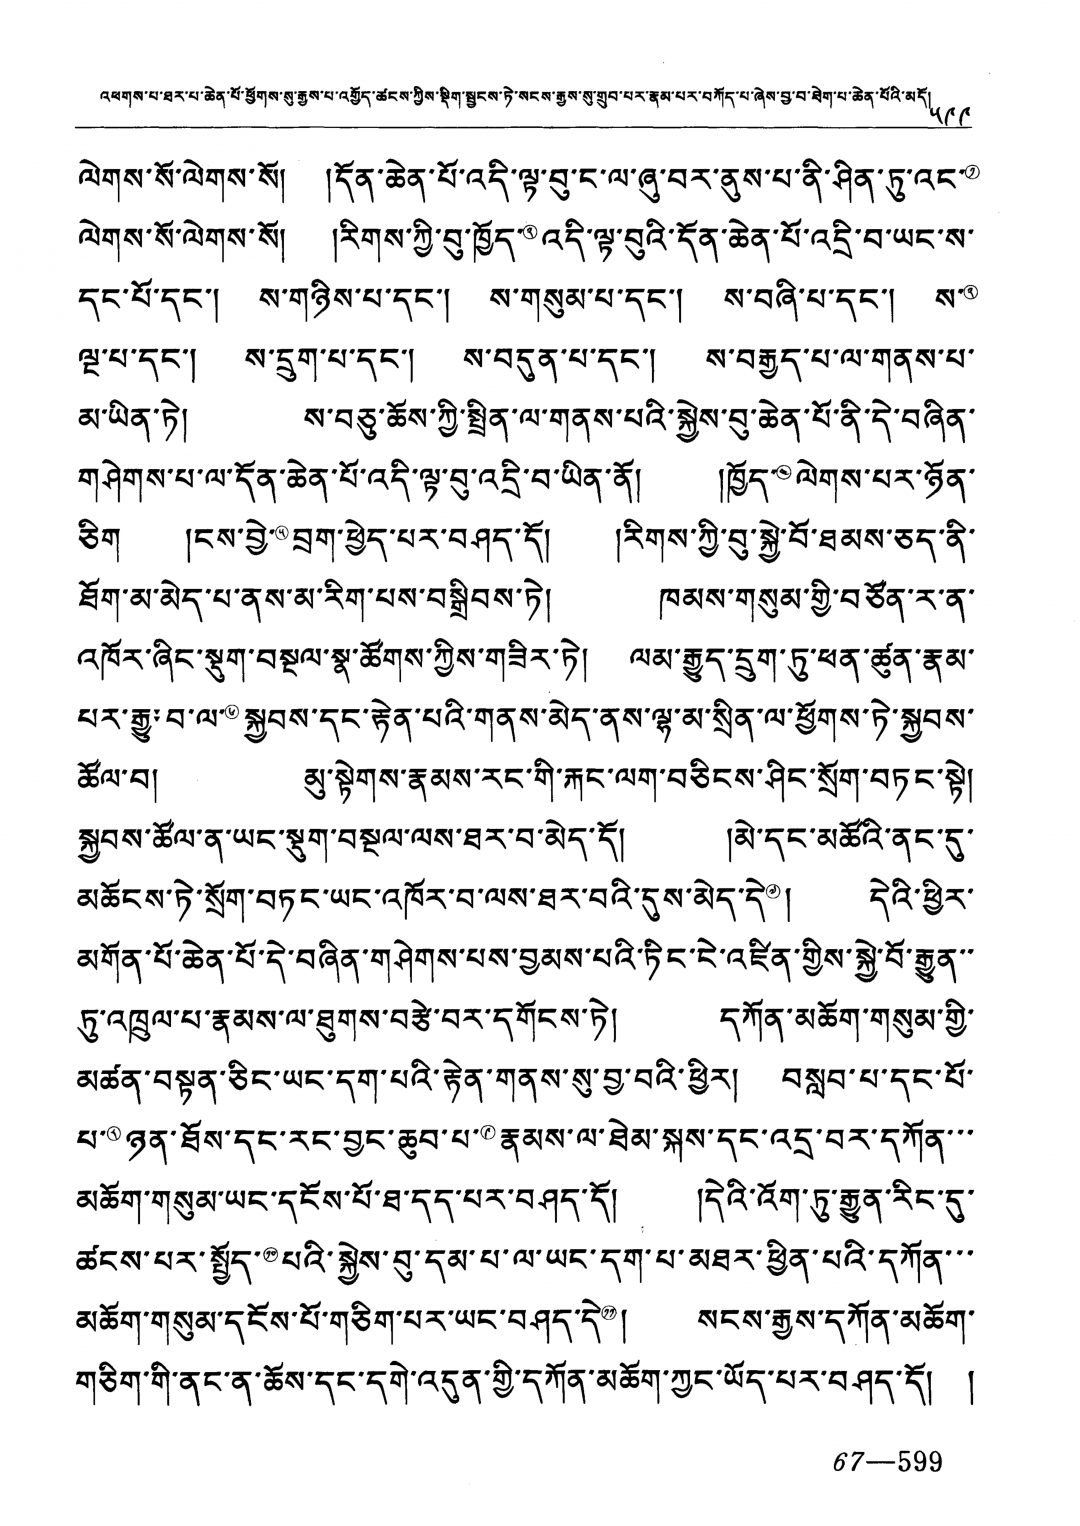 འཕགས་པ་ཐར་པ་ཆེན་པོ་ཕྱོགས་སུ་རྒྱས་པ་འགྱོད་ཚངས་ཀྱིས་སྡིག་སྦྱངས་ཏེ་སངས་རྒྱས་སུ་གྲུབ་པར་རྣམ་པར་བཀོད་པ་ཞེས་བྱ་བ་ཐེག་པ་ཆེན་པོའི་མདོ། ༥༩༩
ལེགས་སོ་ལེགས་སོ། །དོན་ཆེན་པོ་འདི་ལྟ་བུ་ང་ལ་ཞུ་བར་ནུས་པ་ནི་ཤིན་ཏུ་འང་①
ལེགས་སོ་ལེགས་སོ། །རིགས་ཀྱི་བུ་ཁྱོད་②འདི་ལྟ་བུའི་དོན་ཆེན་པོ་འདྲི་བ་ཡང་ས་
དང་པོ་དང་། ས་གཉིས་པ་དང་། ས་གསུམ་པ་དང་། ས་བཞི་པ་དང་། ས་③
ལྔ་པ་དང་། ས་དྲུག་པ་དང་། ས་བདུན་པ་དང་། ས་བརྒྱད་པ་ལ་གནས་པ་
མ་ཡིན་ཏེ། ས་བཅུ་ཆོས་ཀྱི་སྤྲིན་ལ་གནས་པའི་སྐྱེས་བུ་ཆེན་པོ་ནི་དེ་བཞིན་
གཤེགས་པ་ལ་དོན་ཆེན་པོ་འདི་ལྟ་བུ་འདྲི་བ་ཡིན་ནོ། །ཁྱོད་④ལེགས་པར་ཉོན་
ཅིག །ངས་བྱེ་⑤བྲག་ཕྱེད་པར་བཤད་དོ། །རིགས་ཀྱི་བུ་སྐྱེ་བོ་ཐམས་ཅད་ནི་
ཐོག་མ་མེད་པ་ནས་མ་རིག་པས་བསྒྲིབས་ཏེ། ཁམས་གསུམ་གྱི་བཙོན་ར་ན་
འཁོར་ཞིང་སྡུག་བསྔལ་སྣ་ཚོགས་ཀྱིས་གཟིར་ཏེ། ལམ་རྒྱུད་དྲུག་ཏུ་ཕན་ཚུན་རྣམ་
པར་རྒྱུ་བ་ལ་⑥སྐྱབས་དང་རྟེན་པའི་གནས་མེད་ནས་ལྷ་མ་སྲིན་ལ་ཕྱོགས་ཏེ་སྐྱབས་
ཚོལ་བ། མུ་སྟེགས་རྣམས་རང་གི་རྐང་ལག་བཅིངས་ཤིང་སྲོག་བཏང་སྟེ།
སྐྱབས་ཚོལ་ན་ཡང་སྡུག་བསྔལ་ལས་ཐར་བ་མེད་དོ། །མེ་དང་མཚོའི་ནང་དུ་
མཆོངས་ཏེ་སྲོག་བཏང་ཡང་འཁོར་བ་ལས་ཐར་བའི་དུས་མེད་དེ⑦། དེའི་ཕྱིར་
མགོན་པོ་ཆེན་པོ་དེ་བཞིན་གཤེགས་པས་བྱམས་པའི་ཏིང་ངེ་འཛིན་གྱིས་སྐྱེ་བོ་རྒྱུན་་
ཏུ་འཁྲུལ་པ་རྣམས་ལ་ཐུགས་བརྩེ་བར་དགོངས་ཏེ། དཀོན་མཆོག་གསུམ་གྱི་
མཚན་བསྟན་ཅིང་ཡང་དག་པའི་རྟེན་གནས་སུ་བྱ་བའི་ཕྱིར། བསླབ་པ་དང་པོ་
པ་⑧ཉན་ཐོས་དང་རང་བྱང་ཆུབ་པ་⑨རྣམས་ལ་ཐེམ་སྐས་དང་འདྲ་བར་དཀོན་་་
མཆོག་གསུམ་ཡང་དངོས་པོ་ཐ་དད་པར་བཤད་དོ། །དེའི་འོག་ཏུ་རྒྱུན་རིང་དུ་
ཚངས་པར་སྤྱོད་⑩པའི་སྐྱེས་བུ་དམ་པ་ལ་ཡང་དག་པ་མཐར་ཕྱིན་པའི་དཀོན་་་
མཆོག་གསུམ་དངོས་པོ་གཅིག་པར་ཡང་བཤད་དེ⑪། སངས་རྒྱས་དཀོན་མཆོག་
གཅིག་གི་ནང་ན་ཆོས་དང་དགེ་འདུན་གྱི་དཀོན་མཆོག་ཀྱང་ཡོད་པར་བཤད་དོ། །
67—599